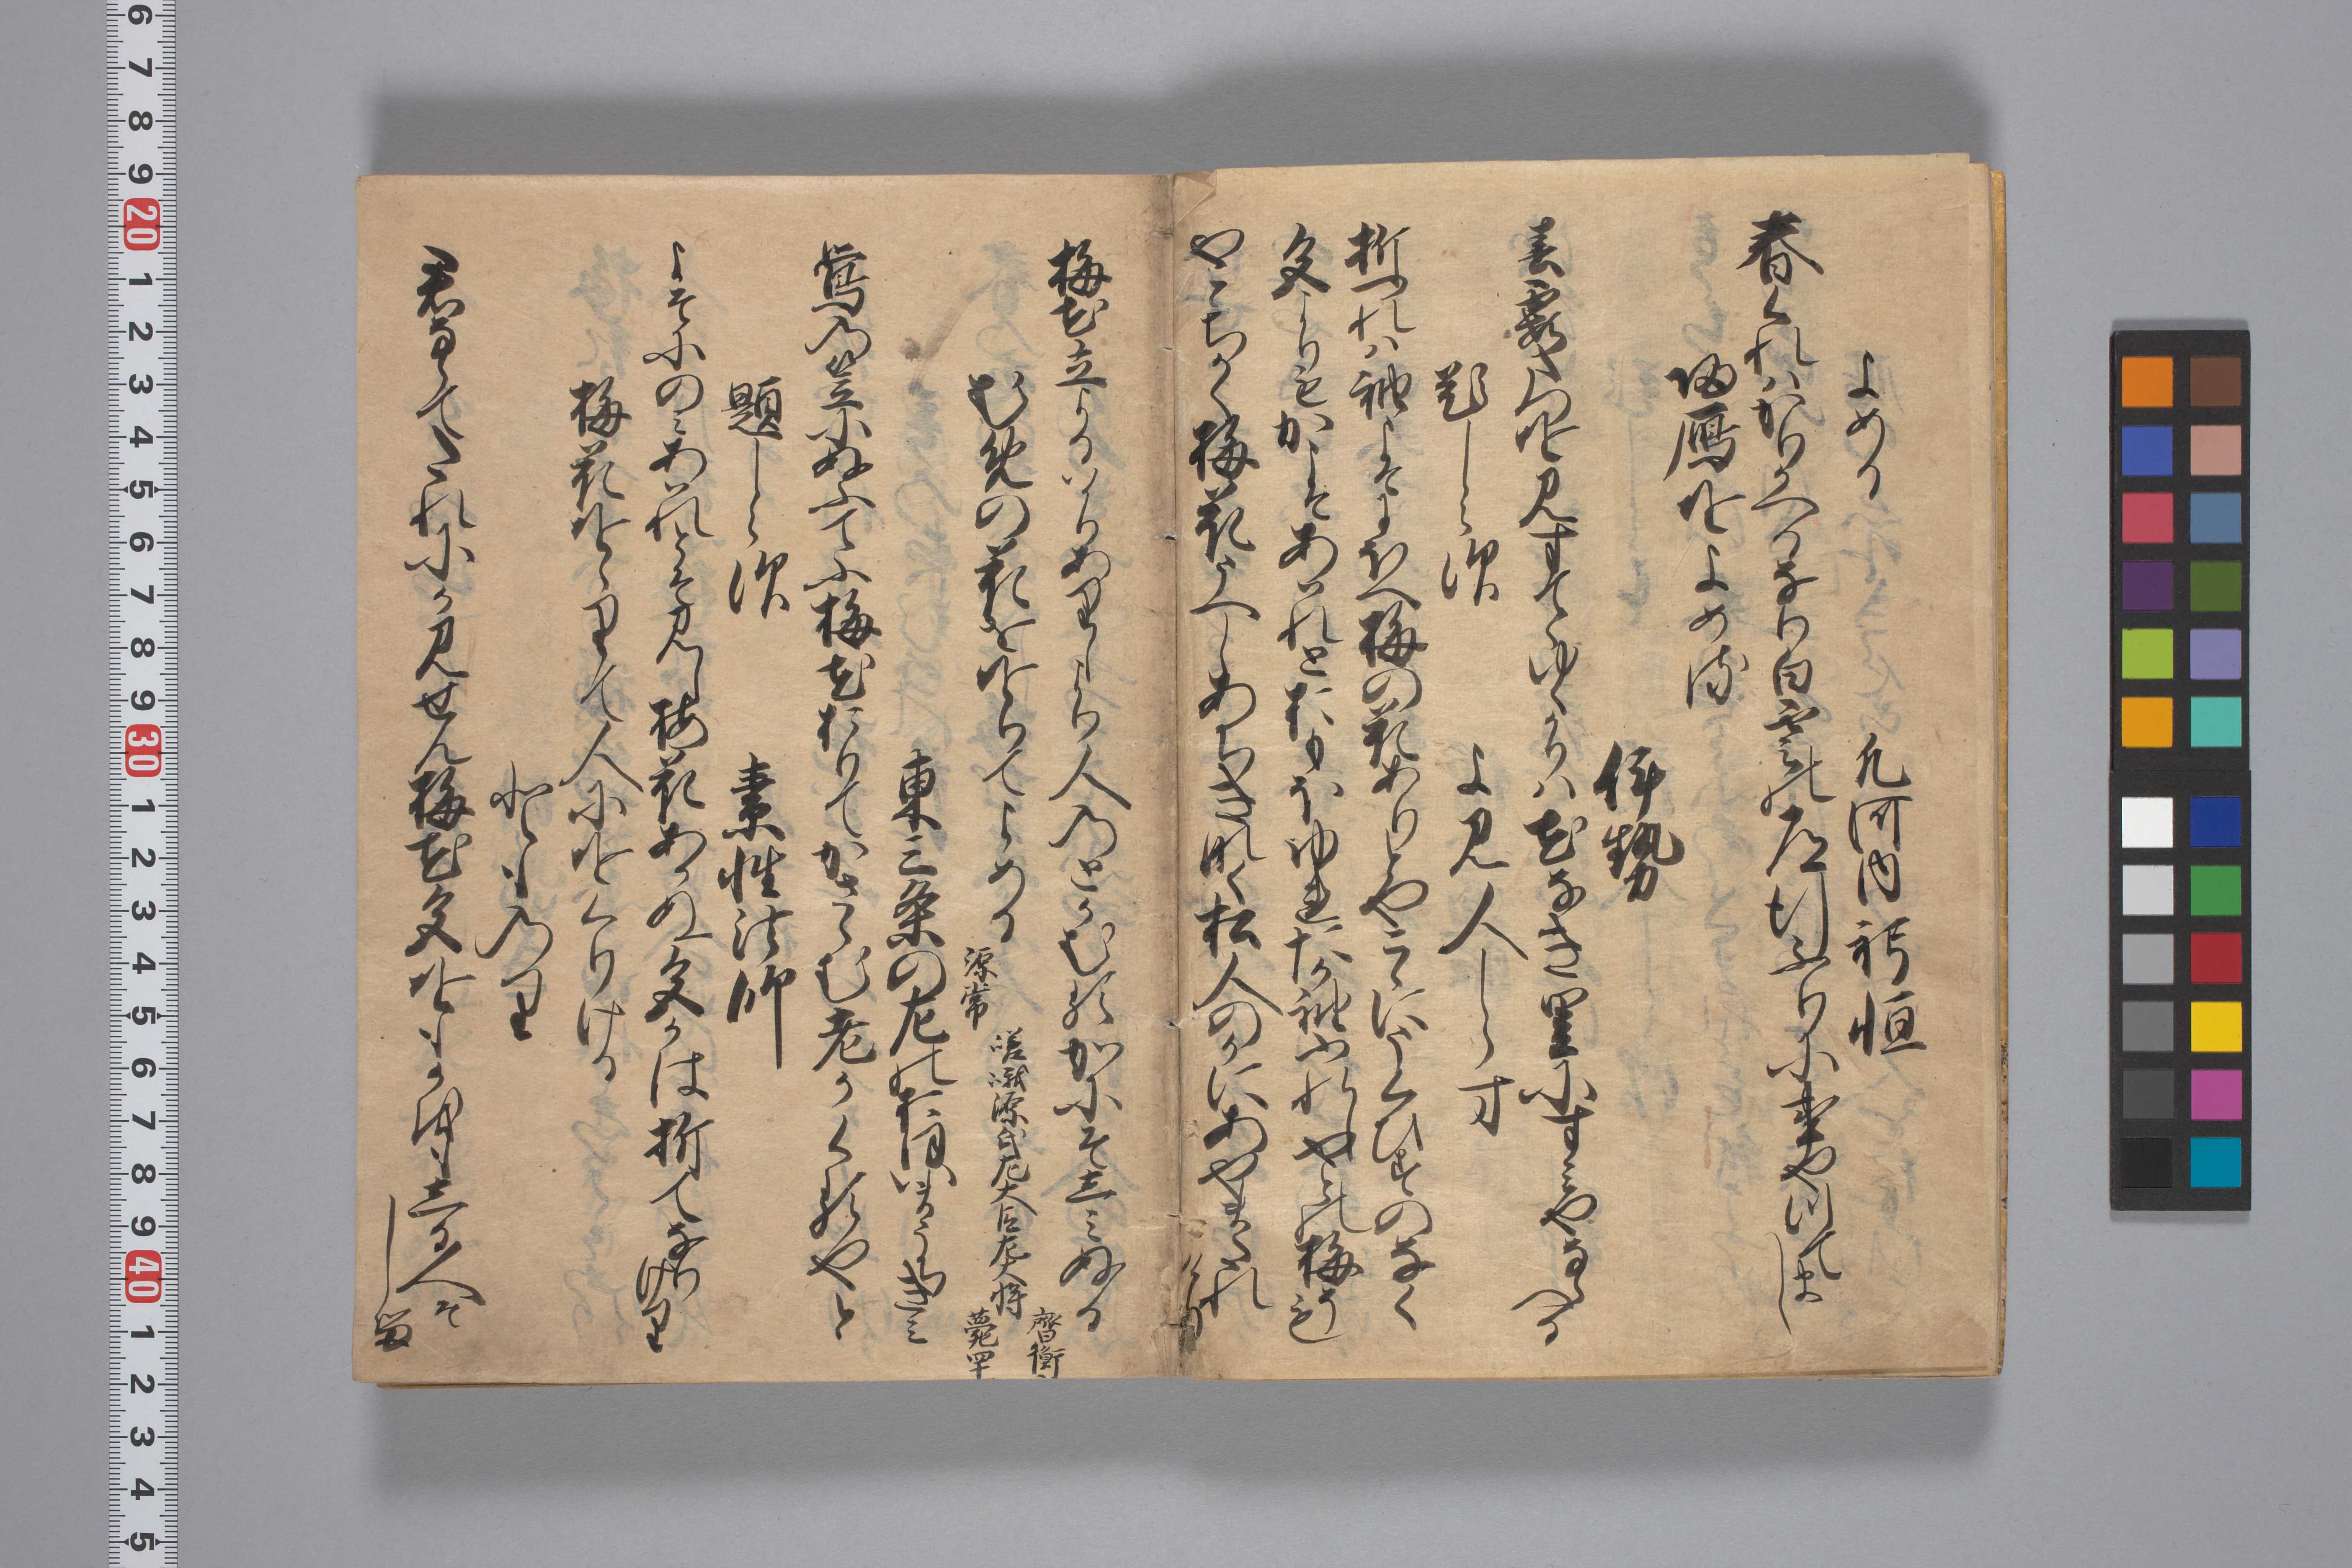 よめる
凡河内躬恒
春くれはかりかへるなり白雲の道行ふりにことやつてまし
帰鴈をよめる
伊勢
春霞たつを見すてゝゆくかりは花なき里にすみやならへる
題しらす
よみ人しらす
折つれは袖こそにほへ梅の花ありとやこゝにうくひすのなく
色よりもかこそあはれとおもほゆれたか袖ふれしやとの梅そも
やとちかく梅花うへしあちきなく松人のかにあやまたれけり
梅花立よるはかりありしより人のとかむるかにそしみぬる
むめの花をおりてよめる
源常
嵯峨源氏左大臣左大将
齊衡
薨四十
東三条の左のおほいまうちきみ
鴬の笠にぬふてふ梅花おりてかさゝむ老かくるやと
題しらす
素性法師
よそにのみあはれとそ見し梅花あかぬ色かは折てなりけり
梅花をゝりて人にをくりける
とものり
君ならてたれにか見せん梅花色をもかをもしる人そしる